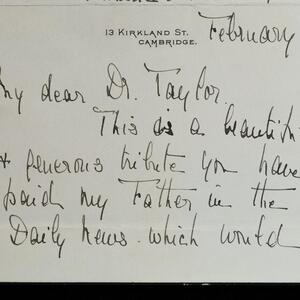 13 KIRKLAND ST.
CAMBRIDGE.
February
my dear Dr. Taylor.
This is a beautif
& generous tribute you have
paid my Father in the
Daily News. which would